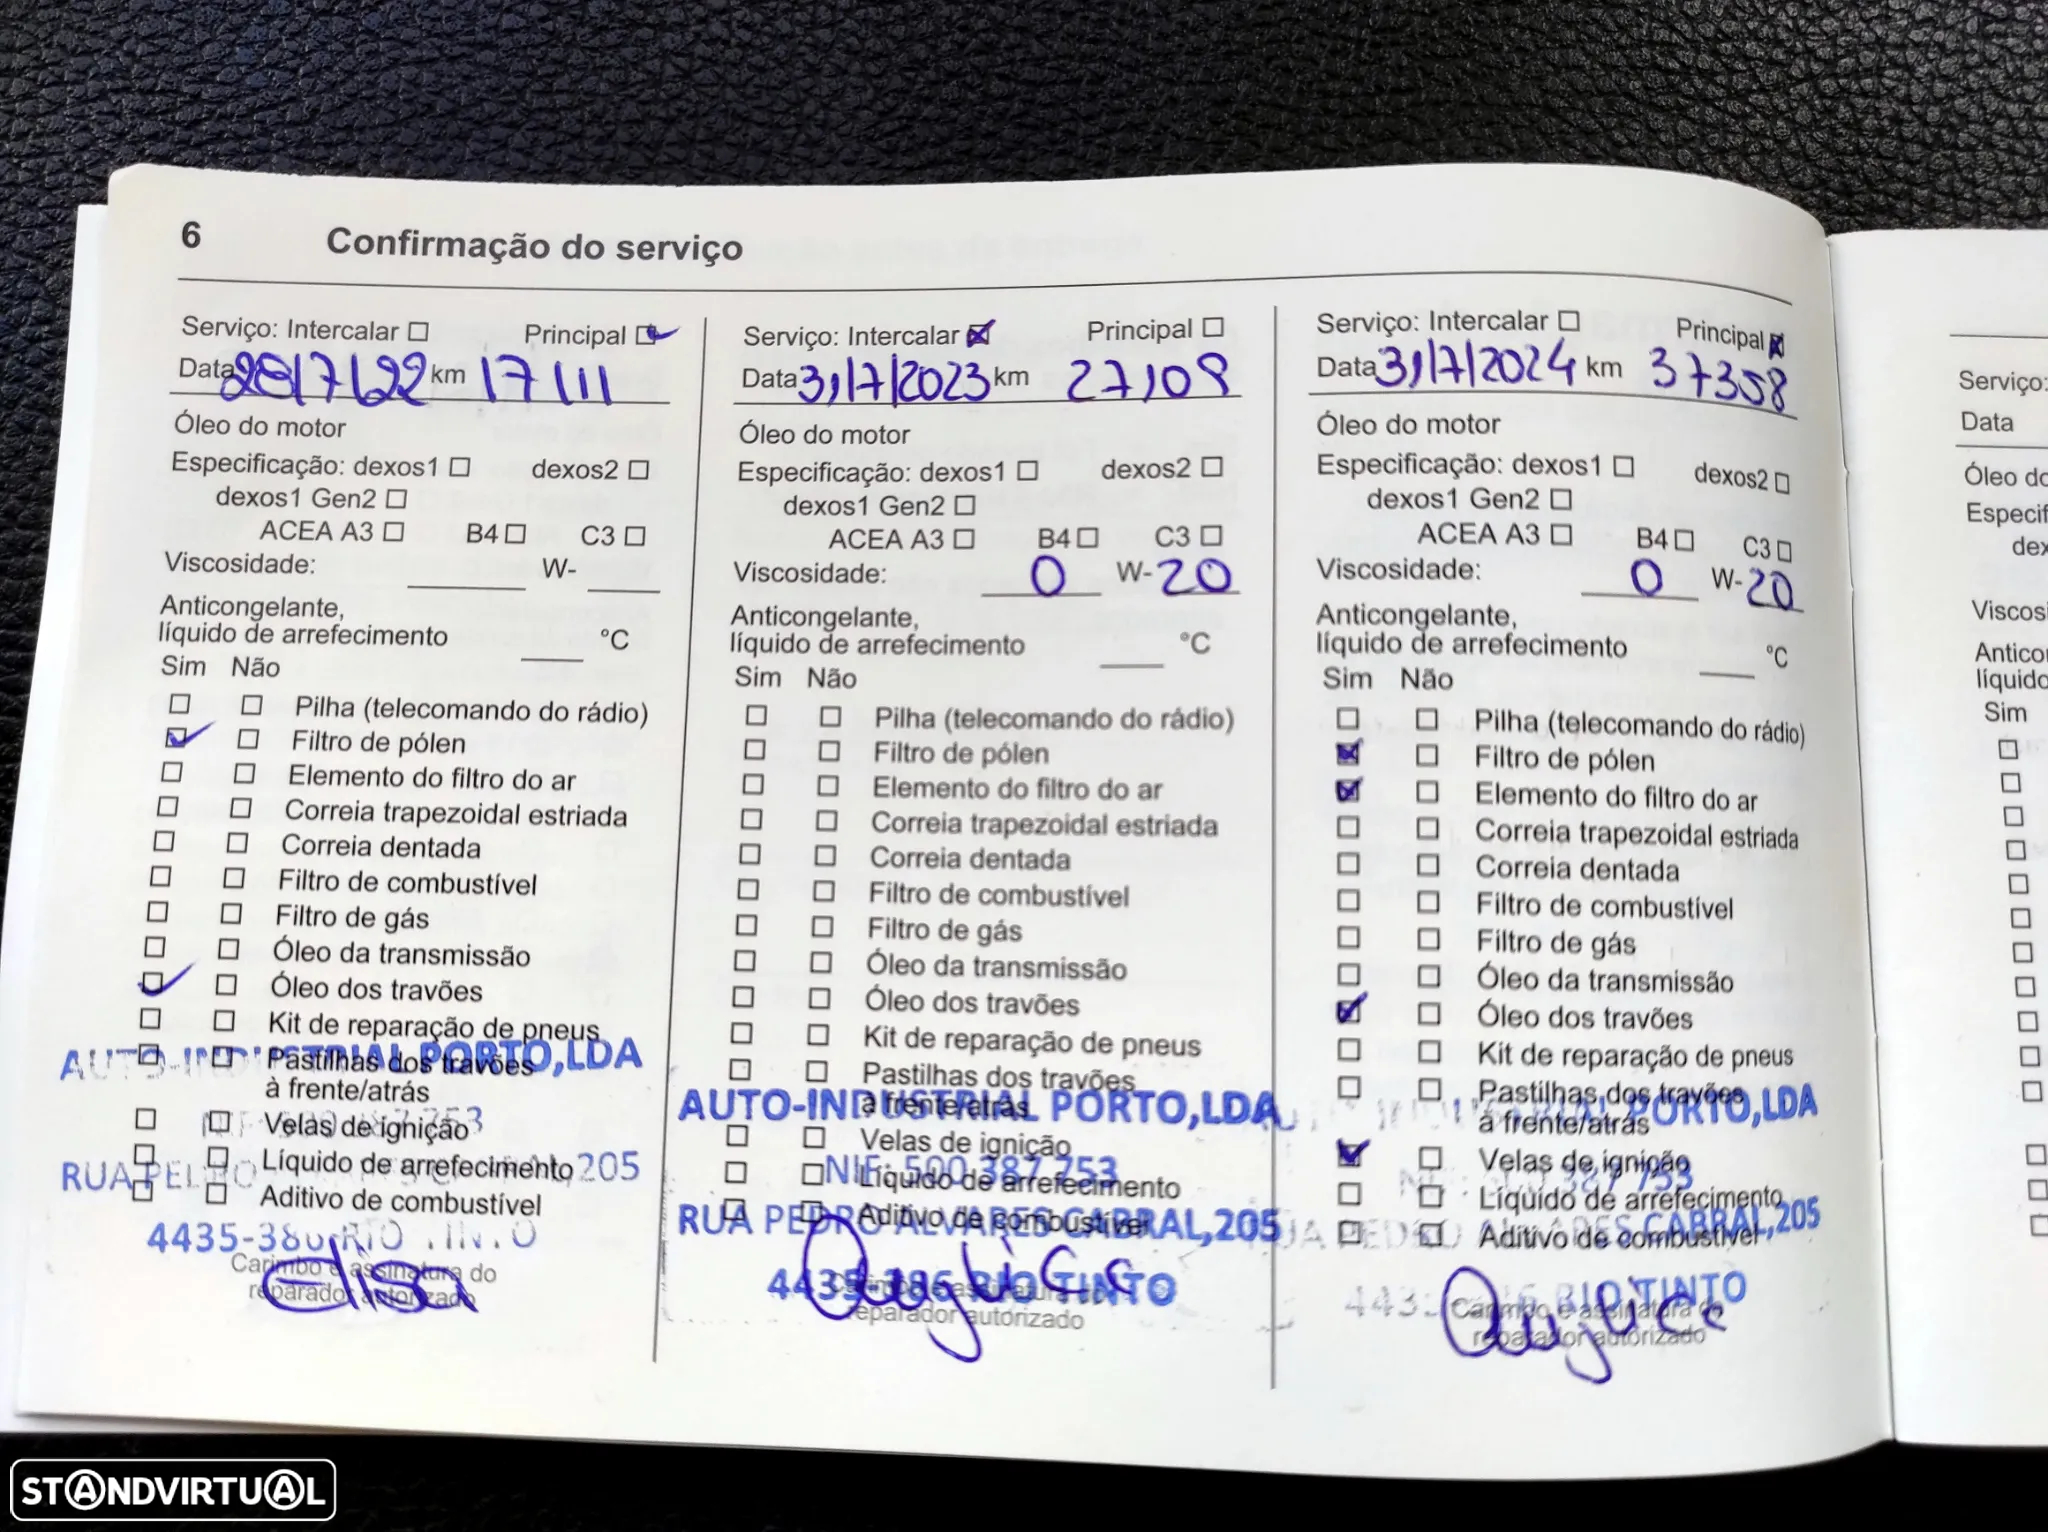 6 Confirmação do serviço
Serviço: Intercalar Principal
Data 28/7/22 km 17111
Óleo do motor
Especificação: dexos1 dexos2
dexos1 Gen2
ACEA A3 B4 C3
Viscosidade: W-
Anticongelante,
líquido de arrefecimento °C
Sim Não
Pilha (telecomando do rádio)
Filtro de pólen
Elemento do filtro do ar
Correia trapezoidal estriada
Correia dentada
Filtro de combustível
Filtro de gás
Óleo da transmissão
Óleo dos travões
Kit de reparação de pneus
Pastilhas dos travões
à frente/atrás
Velas de ignição
Líquido de arrefecimento
Aditivo de combustível
AUTO-INDUSTRIAL PORTO,LDA
4435-386 RIO TINTO
Carimbo e assinatura do
reparador autorizado
Serviço: Intercalar Principal
Data 31/7/2023 km 27109
Óleo do motor
Especificação: dexos1 dexos2
dexos1 Gen2
ACEA A3 B4 C3
Viscosidade: 0 W-20
Anticongelante,
líquido de arrefecimento °C
Sim Não
Pilha (telecomando do rádio)
Filtro de pólen
Elemento do filtro do ar
Correia trapezoidal estriada
Correia dentada
Filtro de combustível
Filtro de gás
Óleo da transmissão
Óleo dos travões
Kit de reparação de pneus
Pastilhas dos travões
à frente/atrás
Velas de ignição
Líquido de arrefecimento
Aditivo de combustível
AUTO-INDUSTRIAL PORTO,LDA
NIF: 500 387 753
RUA PEDRO ALVARES CABRAL,205
4435-386 RIO TINTO
reparador autorizado
Serviço: Intercalar Principal
Data 31/7/2024 km 37358
Óleo do motor
Especificação: dexos1 dexos2
dexos1 Gen2
ACEA A3 B4 C3
Viscosidade: 0 W-20
Anticongelante,
líquido de arrefecimento °C
Sim Não
Pilha (telecomando do rádio)
Filtro de pólen
Elemento do filtro do ar
Correia trapezoidal estriada
Correia dentada
Filtro de combustível
Filtro de gás
Óleo da transmissão
Óleo dos travões
Kit de reparação de pneus
Pastilhas dos travões
à frente/atrás
Velas de ignição
Líquido de arrefecimento
Aditivo de combustível
PORTO,LDA
387 753
RUA PEDRO ALVARES CABRAL,205
RIO TINTO
Carimbo e assinatura do
reparador autorizado
Serviço:
Data
Sim
STANDVIRTUAL